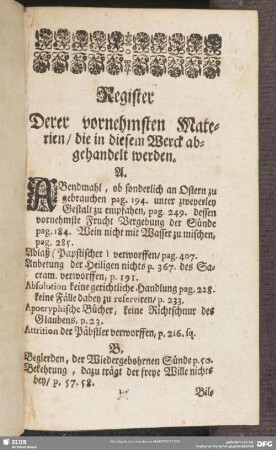 Register
Derer vornehmsten Mate-
rien/ die in diesem Werck ab-
gehandelt werden.
A.
ABendmahl, ob sonderlich an Ostern zu
gebrauchen pag. 194. unter zweyerley
Gestalt zu empfahen, pag. 249. dessen
vornehmste Frucht Vergebung der Sünde
pag. 184. Wein nicht mit Wasser zu mischen,
pag. 285.
Ablaß (Päpstischer) verworffen/ pag. 407.
Anbetung der Heiligen nichts p. 367. des Sa-
cram. verworffen, p. 191.
Absolution keine gerichtliche Handlung pag. 228.
keine Fälle dabey zu reserviren/ p. 233.
Apocryphische Bücher, keine Richtschnur des
Glaubens. p. 23.
Attrition der Päbstler verworffen, p. 216. sq.
B.
Begierden, der Wiedergebohrnen Sünde p. 50.
Bekehrung, dazu trägt der freye Wille nichts
bey/ p. 57. 58.
Bil-
SLUB
DFG